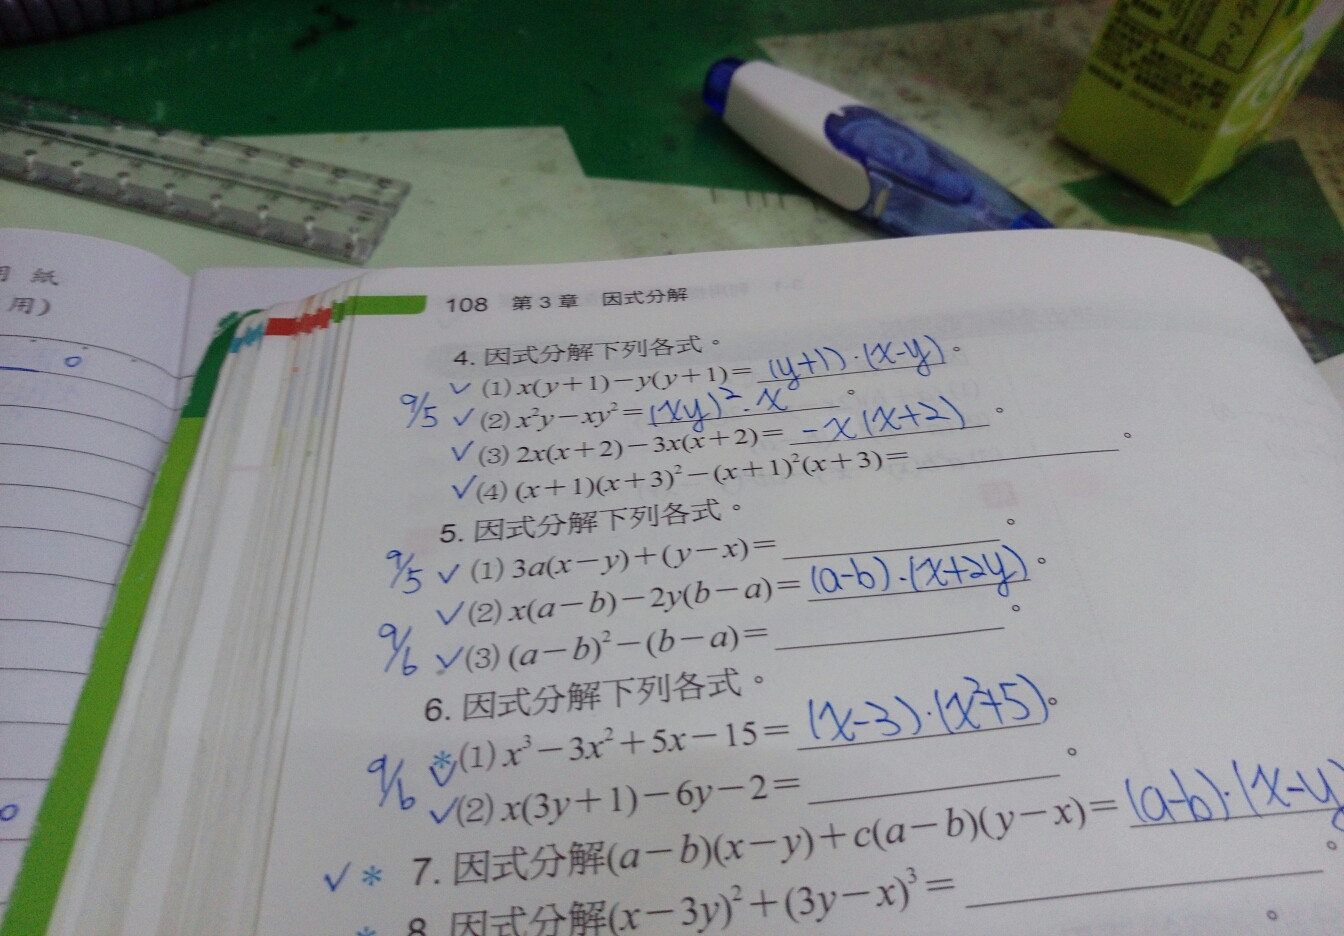 用紙
用)
108 第3章 因式分解
4. 因式分解下列各式。
(1) x(y+1)-y(y+1)= (y+1)·(x-y)。
9/5 (2) x²y-xy²= (xy)²·x。
(3) 2x(x+2)-3x(x+2)= -x(x+2)。
(4) (x+1)(x+3)²-(x+1)²(x+3)=。
5. 因式分解下列各式。
9/5 (1) 3a(x-y)+(y-x)=。
(2) x(a-b)-2y(b-a)= (a-b)·(x+2y)。
9/6 (3) (a-b)²-(b-a)=。
6. 因式分解下列各式。
9/6 *(1) x³-3x²+5x-15= (x-3)·(x²+5)。
(2) x(3y+1)-6y-2=。
* 7. 因式分解(a-b)(x-y)+c(a-b)(y-x)= (a-b)·(x-y)。
* 8. 因式分解(x-3y)²+(3y-x)³=。